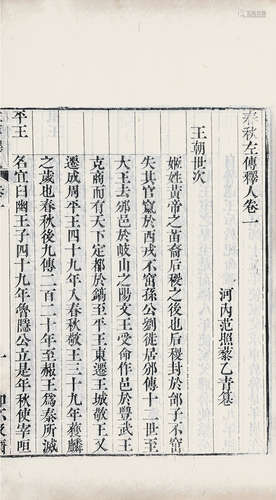 春秋左傳釋人卷一
河內范照藜乙青纂
王朝世次
姬姓黃帝之苗裔后稷之後也后稷封於邰子不窋
失其官竄於西戎不窋孫公劉徙居邠傳十二世至
大王去邠邑於岐山之陽文王受命作邑於豐武王
克商而有天下定都於鎬至平王東遷王城敬王又
遷成周平王四十九年入春秋敬王三十九年獲麟
之歲也春秋後九傳二百二十年至赧王為秦所滅
平王
名宜臼幽王子四十九年魯隱公立是年秋使宰咺
卷一
一